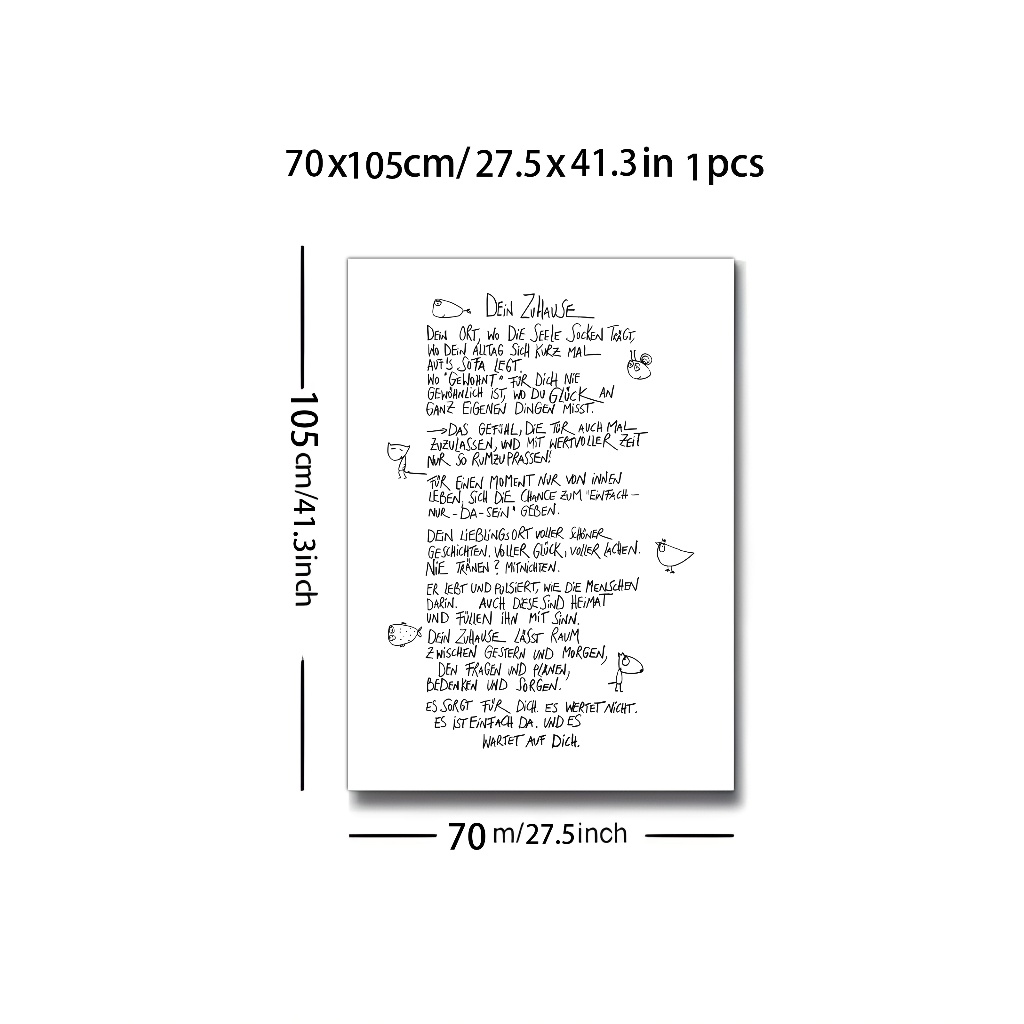 70x105cm/ 27.5x41.3in 1pcs
105cm/41.3inch
DEIN ZUHAUSE
DEIN ORT, WO DIE SEELE SOCKEN TRÄGT,
WO DEIN ALLTAG SICH KURZ MAL
AUF'S SOFA LEGT.
WO "GEWOHNT" FÜR DICH NIE
GEWÖHNLICH IST, WO DU GLÜCK AN
GANZ EIGENEN DINGEN MISST.
→DAS GEFÜHL, DIE TÜR AUCH MAL
ZUZULASSEN, UND MIT WERTVOLLER ZEIT
NUR SO RUMZUPRASSEN!
FÜR EINEN MOMENT NUR VON INNEN
LEBEN, SICH DIE CHANCE ZUM "EINFACH-
NUR-DA-SEIN" GEBEN.
DEIN LIEBLINGSORT VOLLER SCHÖNER
GESCHICHTEN, VOLLER GLÜCK, VOLLER LACHEN.
NIE TRÄNEN? MITNICHTEN.
ER LEBT UND PULSIERT, WIE DIE MENSCHEN
DARIN. AUCH DIESE SIND HEIMAT
UND FÜLLEN IHN MIT SINN.
DEIN ZUHAUSE LÄSST RAUM
ZWISCHEN GESTERN UND MORGEN,
DEN FRAGEN UND PLÄNEN,
BEDENKEN UND SORGEN.
ES SORGT FÜR DICH. ES WERTET NICHT.
ES IST EINFACH DA. UND ES
WARTET AUF DICH.
70 m/27.5inch